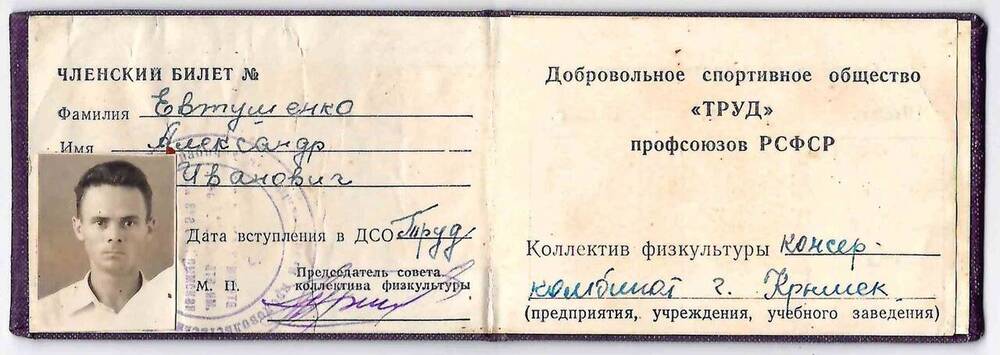 ЧЛЕНСКИЙ БИЛЕТ №
Фамилия Евтушенко
Имя Александр
Иванович
Дата вступления в ДСО Труд
Председатель совета
М. П. коллектива физкультуры
Добровольное спортивное общество
«ТРУД»
профсоюзов РСФСР
Коллектив физкультуры консер-
комбинат г. Крымск
(предприятия, учреждения, учебного заведения)